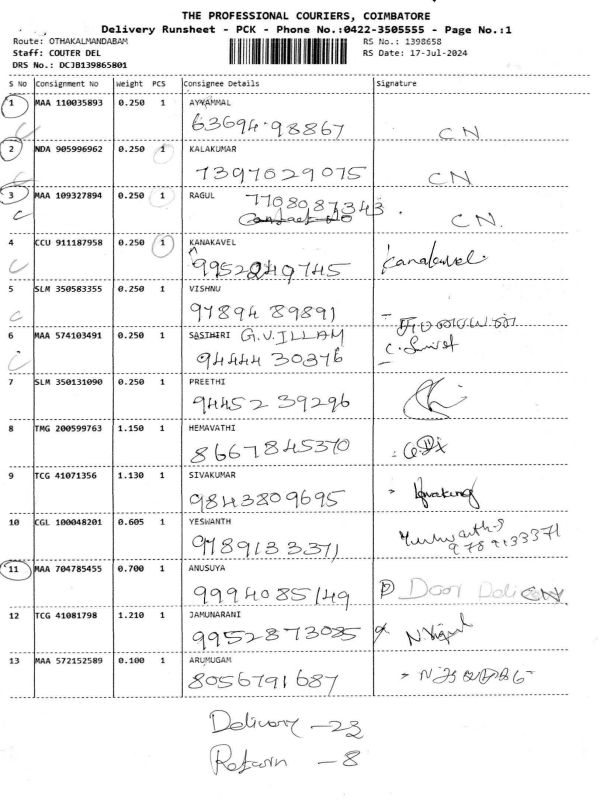 THE PROFESSIONAL COURIERS, COIMBATORE
Delivery Runsheet - PCK - Phone No.:0422-3505555 - Page No.:1
Route: OTHAKALMANDABAM RS No.: 1398658
Staff: COUTER DEL RS Date: 17-Jul-2024
DRS No.: DCJB139865801
S No Consignment No Weight PCS Consignee Details Signature
1 MAA 110035893 0.250 1 AYYAMMAL
63694 98867 CN
2 NDA 905996962 0.250 1 KALAKUMAR
7397029075 CN
3 MAA 109327894 0.250 1 RAGUL 7708087343
Contact No CN.
4 CCU 911187958 0.250 1 KANAKAVEL
9952249745 Kanakavel
5 SLM 350583355 0.250 1 VISHNU
97894 89891
6 MAA 574103491 0.250 1 SASTHIRI G.V.ILLAM
94444 30376
7 SLM 350131090 0.250 1 PREETHI
94452 39296
8 TMG 200599763 1.150 1 HEMAVATHI
8667845370
9 TCG 41071356 1.130 1 SIVAKUMAR
9843809695
10 CGL 100048201 0.605 1 YESWANTH
9789133371 9789133371
11 MAA 704785455 0.700 1 ANUSUYA
9994085149 Door Deli CN.
12 TCG 41081798 1.210 1 JAMUNARANI
9952873085
13 MAA 572152589 0.100 1 ARUMUGAM
8056791687
Delivery - 23
Return - 8